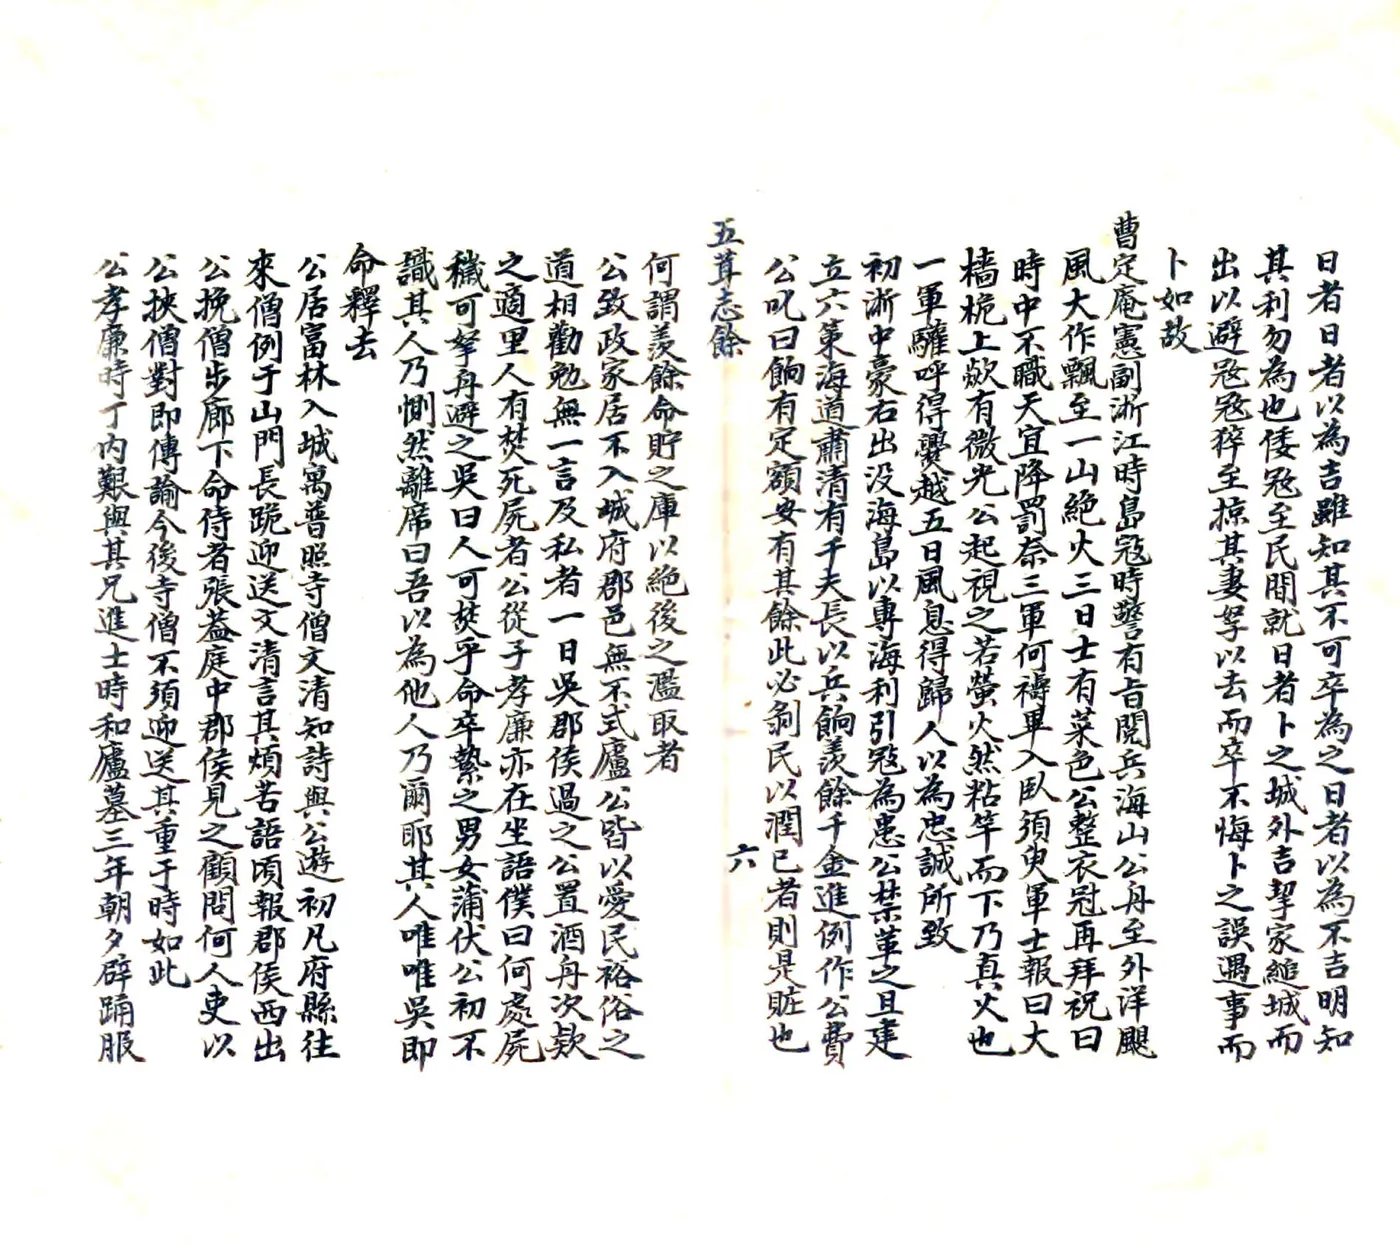 日者日者以為吉雖知其不可卒為之日者以為不吉明知
其利勿為也倭冦至民間就日者卜之城外吉挈家縋城而
出以避冦冦猝至掠其妻孥以去而卒不悔卜之誤遇事而
卜如故
曹定庵憲副浙江時島冦時警有旨閱兵海山公舟至外洋颶
風大作飄至一山絶火三日士有菜色公整衣冠再拜祝曰
時中不職天宜降罰奈三軍何禱畢入臥須臾軍士報曰大
檣桅上歘有微光公起視之若螢火然粘竿而下乃真火也
一軍驩呼得爨越五日風息得歸人以為忠誠所致
初浙中豪右出没海島以專海利引冦為患公禁革之且建
立六策海道肅清有千夫長以兵餉羨餘千金進例作公費
公叱曰餉有定額安有其餘此必剝民以潤已者則是賍也
五茸志餘
六
何謂羨餘命貯之庫以絶後之濫取者
公致政家居不入城府郡邑無不式廬公皆以愛民裕俗之
道相勸勉無一言及私者一日吳郡侯過之公置酒舟次歘
之適里人有焚死屍者公從子孝廉亦在坐語僕曰何處屍
穢可拏舟避之吳曰人可焚乎命卒縶之男女蒲伏公初不
識其人乃惻然離席曰吾以為他人乃爾耶其人唯唯吳即
命釋去
公居富林入城寓普照寺僧文清知詩與公遊初凡府縣往
來僧例于山門長跪迎送文清言其煩苦語頃報郡侯西出
公挽僧步廊下命侍者張葢庭中郡侯見之顧問何人吏以
公挾僧對即傳諭今後寺僧不須迎送其重于時如此
公孝廉時丁内艱與其兄進士時和廬墓三年朝夕辟踊服